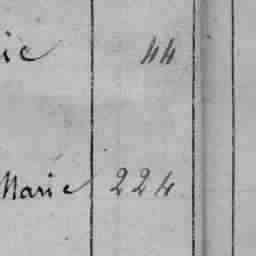 ie 44
Marie 224